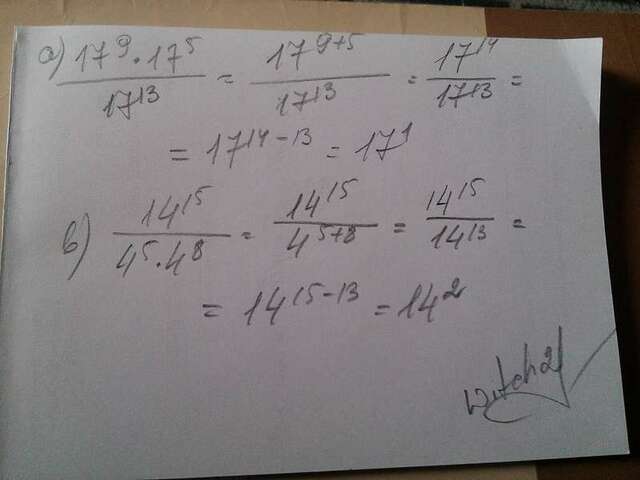 а) 17^9 · 17^5 / 17^13 = 17^(9+5) / 17^13 = 17^14 / 17^13 =
= 17^(14-13) = 17^1
в) 14^15 / 4^5 · 4^8 = 14^15 / 4^(5+8) = 14^15 / 14^13 =
= 14^(15-13) = 14^2
witch21